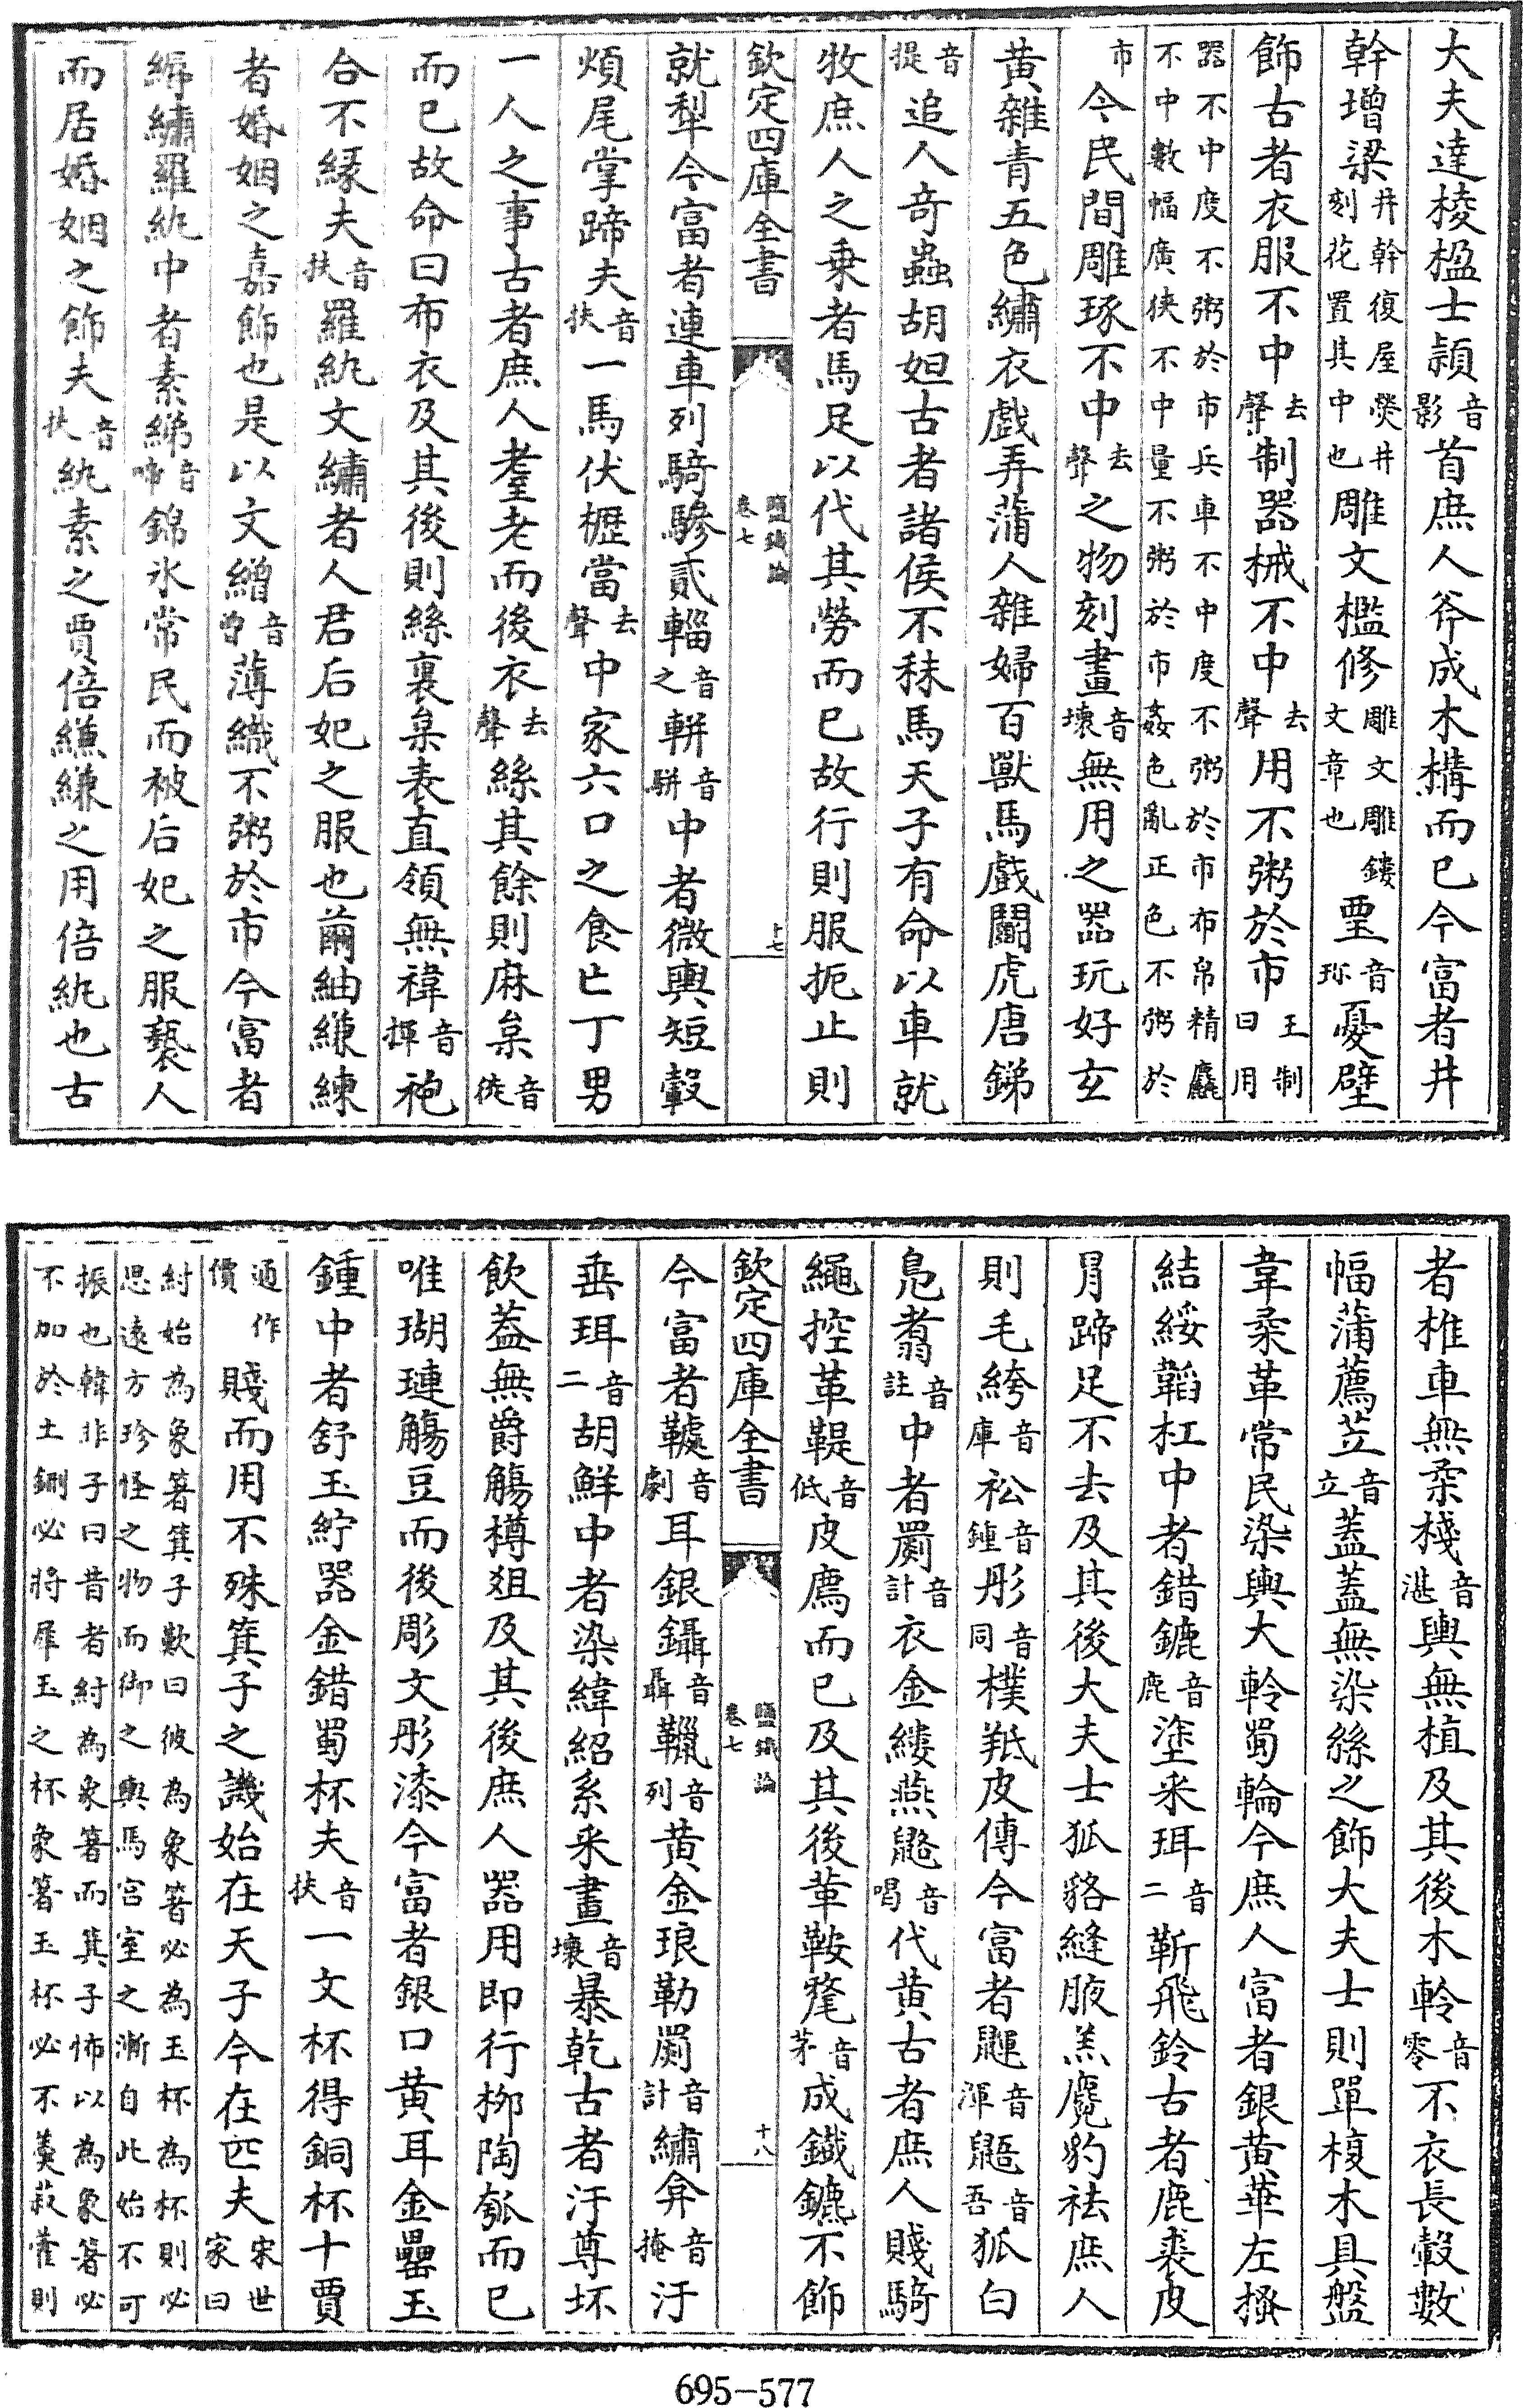 大夫達棱楹士頴音影首庶人斧成木構而已今富者井
幹増梁井幹復屋熒井刻花置其中也雕文檻修雕文雕鏤文章也堊音㻞憂壁
飾古者衣服不中去聲制器械不中去聲用不粥於市王制曰用
器不中度不粥於市兵車不中度不粥於市布帛精麤不中數幅廣狹不中量不粥於市姦色亂正色不粥於
市今民間雕琢不中去聲之物刻畫音壞無用之器玩好玄
黄雜青五色繡衣戯弄蒲人雜婦百獸馬戯鬭虎唐銻
音提追人奇蟲胡妲古者諸侯不秣馬天子有命以車就
牧庶人之乗者馬足以代其勞而已故行則服扼止則
欽定四庫全書 鹽鐵論 卷七 十七
就犁今富者連車列騎驂貳輜音之軿音駢中者微輿短轂
煩尾掌蹄夫音扶一馬伏櫪當去聲中家六口之食亡丁男
一人之事古者庶人耋老而後衣去聲絲其餘則麻枲音徙
而已故命曰布衣及其後則絲裏枲表直領無褘音揮袍
合不縁夫音扶羅紈文繡者人君后妃之服也繭紬縑練
者婚姻之嘉飾也是以文繒音曾薄織不粥於市今富者
縟繡羅紈中者素綈音啼錦氷常民而被后妃之服褻人
而居婚姻之飾夫音扶紈素之賈倍縑縑之用倍紈也古
者椎車無柔棧音湛輿無植及其後木軨音零不衣長轂數
幅蒲薦苙音立蓋蓋無染絲之飾大夫士則單榎木具盤
韋柔革常民染輿大軨蜀輪今庶人富者銀黄華左搔
結綏韜杠中者錯鑣音鹿塗采珥音二靳飛鈴古者鹿裘皮
冃蹄足不去及其後大夫士狐貉縫腋羔麑豹袪庶人
則毛絝音庫衳音鍾彤音同樸羝皮傅今富者鼲音渾鼯音吾狐白
鳬翥音註中者罽音計衣金縷燕鼦音喝代黄古者庶人賤騎
繩控革鞮音低皮廌而已及其後革鞍氂音茅成鐵鑣不飾
欽定四庫全書 鹽鐵論 卷七 十八
今富者䩞音劇耳銀鑷音聶䪉音列黄金琅勒罽音計繡弇音掩汙
垂珥音二胡鮮中者染緯紹系采畫音壞暴乾古者汙尊坏
飲蓋無爵觴樽俎及其後庶人器用即行栁陶瓠而已
唯瑚璉觴豆而後彫文彤漆今富者銀口黄耳金罍玉
鍾中者舒玉紵器金錯蜀杯夫音扶一文杯得銅杯十賈
通作價賤而用不殊箕子之譏始在天子今在匹夫宋世家曰
紂始為象箸箕子歎曰彼為象箸必為玉杯為杯則必思遠方珍怪之物而御之輿馬宫室之漸自此始不可
振也韓非子曰昔者紂為象箸而箕子怖以為象箸必不加於土鉶必將犀玉之杯象箸玉杯必不羮菽藿則
695-577